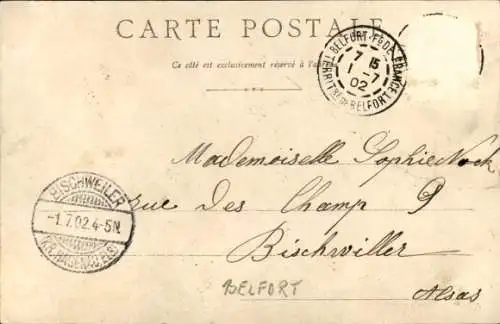 CARTE POSTALE
Ce côté est exclusivement réservé à l'
BELFORT FG DE FRANCE
7 15
1 -7
02
TERRIT.RE DE BELFORT
Mademoiselle Sophie Nock
rue des Champ 9
Bischwiller
Alsas
BISCHWEILER
-1.7.02.4-5N.
BELFORT